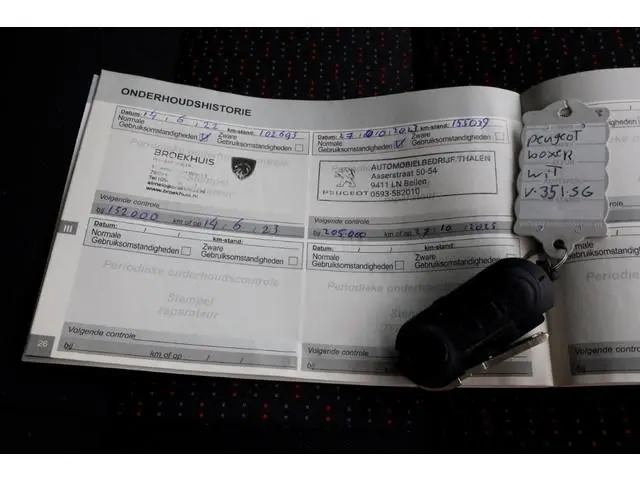 ONDERHOUDSHISTORIE
Datum: 14 / 6 / 23 km-stand: 102693
Normale Gebruiksomstandigheden Zware Gebruiksomstandigheden
BROEKHUIS
www.broekhuis.nl
Volgende controle
bij 152000 km of op 14 / 6 / 23
Datum: 27 / 10 / 2023 km-stand: 155039
Normale Gebruiksomstandigheden Zware Gebruiksomstandigheden
PEUGEOT
AUTOMOBIELBEDRIJF THALEN
Asserstraat 50-54
9411 LN Beilen
0593-582010
Volgende controle
bij 205.000 km of op 27 / 10 / 2025
III
Datum: / / km-stand:
Normale Gebruiksomstandigheden Zware Gebruiksomstandigheden
Periodieke onderhoudscontrole
Stempel
reparateur
Volgende controle
bij km of op / /
Datum: / / km-stand:
Normale Gebruiksomstandigheden Zware Gebruiksomstandigheden
Volgende controle
bij km of op
26
peugeot
boxer
wit
V-351-SG